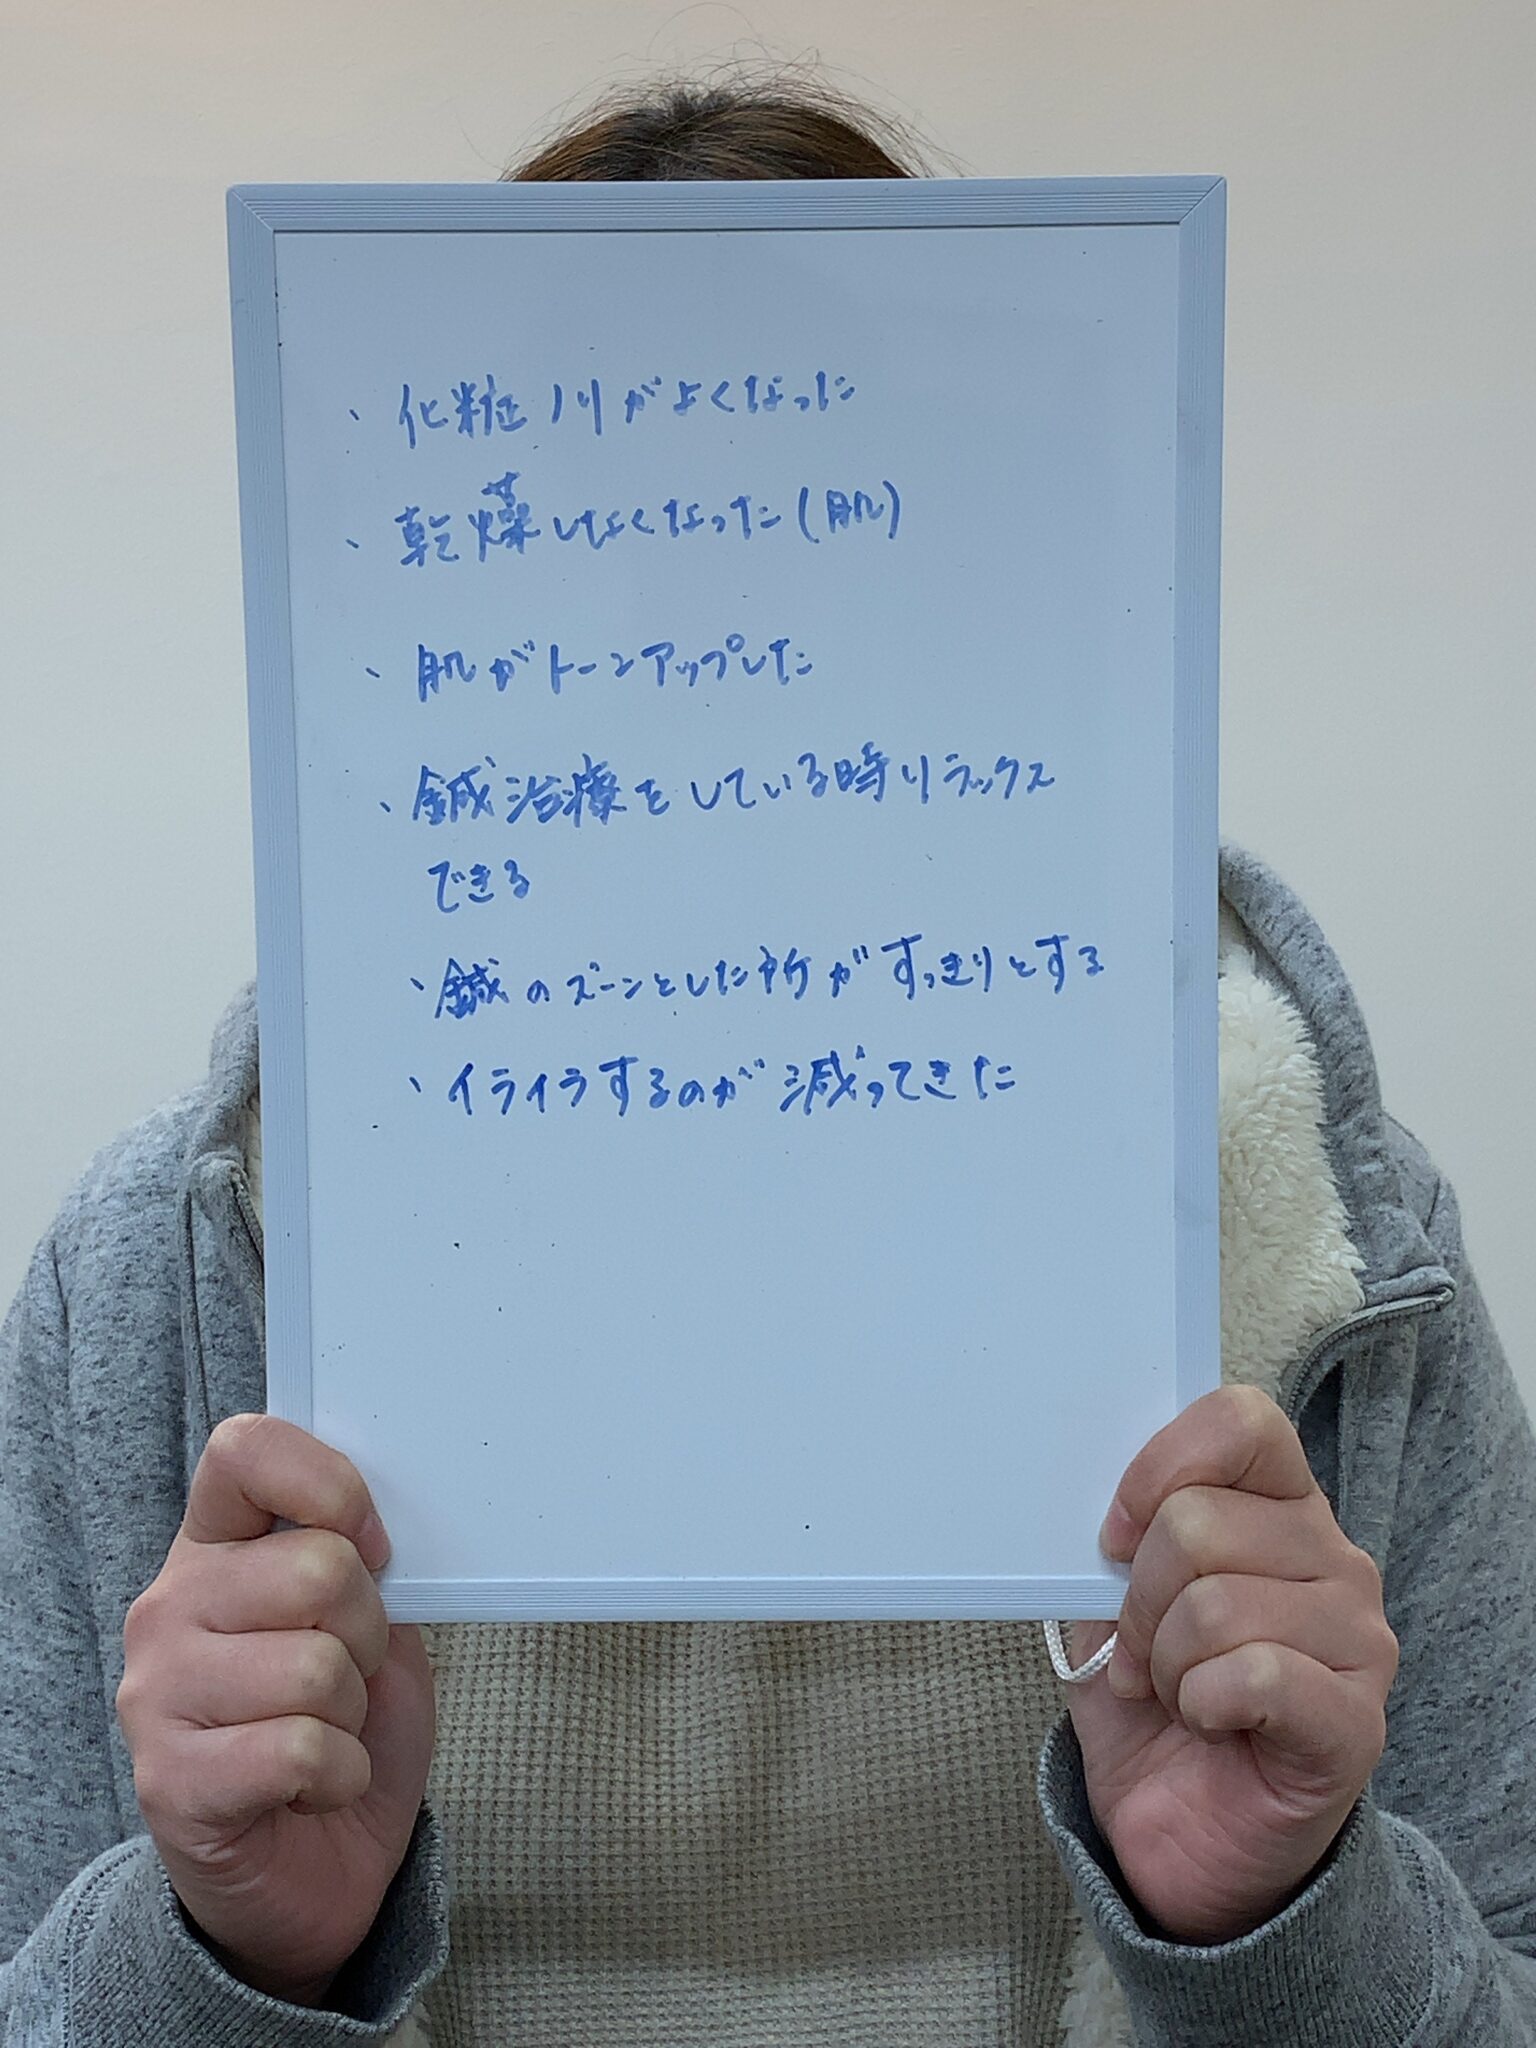 、化粧ノリがよくなった
、乾燥しなくなった(肌)
、肌がトーンアップした
、鍼治療をしている時リラックス
できる
、鍼のズーンとした所がすっきりとする
、イライラするのが減ってきた